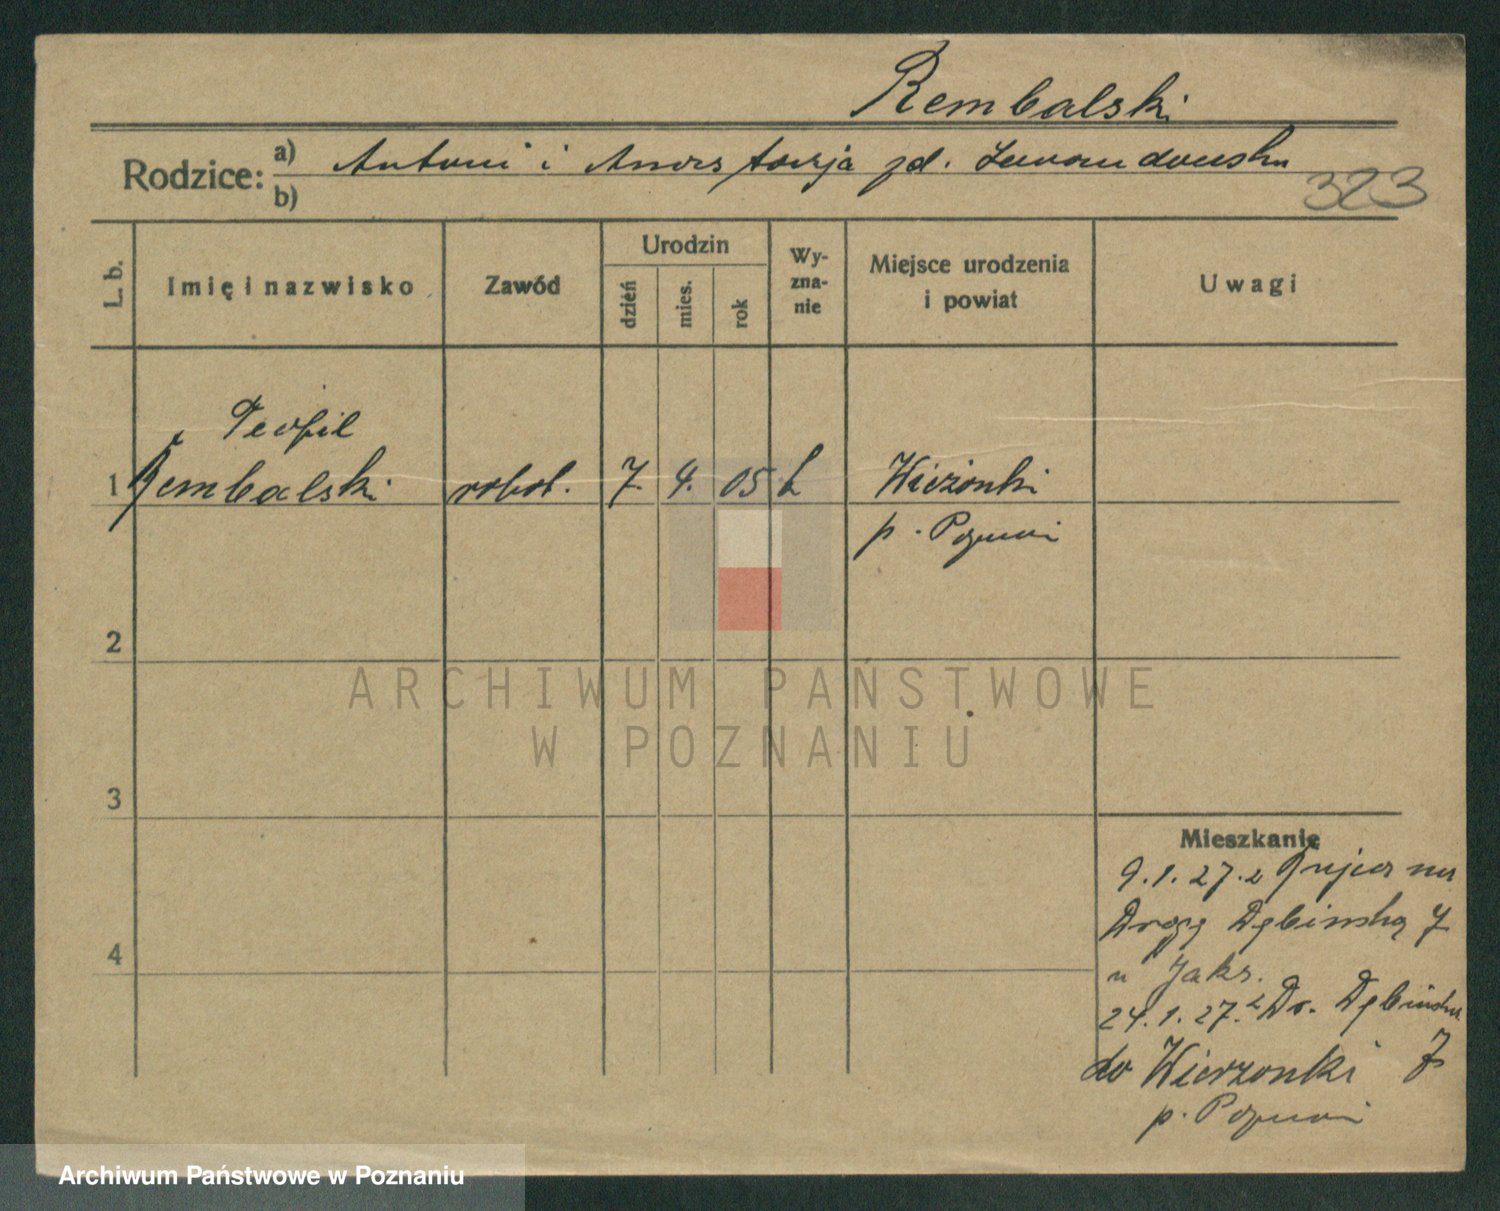 Rembalski
Rodzice: a) Antoni i Anastazja zd. Lewandowska
b)
323
L. b.
Imię i nazwisko
Zawód
Urodzin
dzień
mies.
rok
Wy-
zna-
nie
Miejsce urodzenia
i powiat
Uwagi
Teofil
1 Rembalski robot. 7. 4. 05 k Wieżonki
p. Poznań
2
3
4
ARCHIWUM PAŃSTWOWE
W POZNANIU
Mieszkanie
9.1.27. z na
Drogę Dębińską 7
u Jaks.
24.1.27. z Dr. Dębińska
do Wierzonki 7
p. Poznań
Archiwum Państwowe w Poznaniu